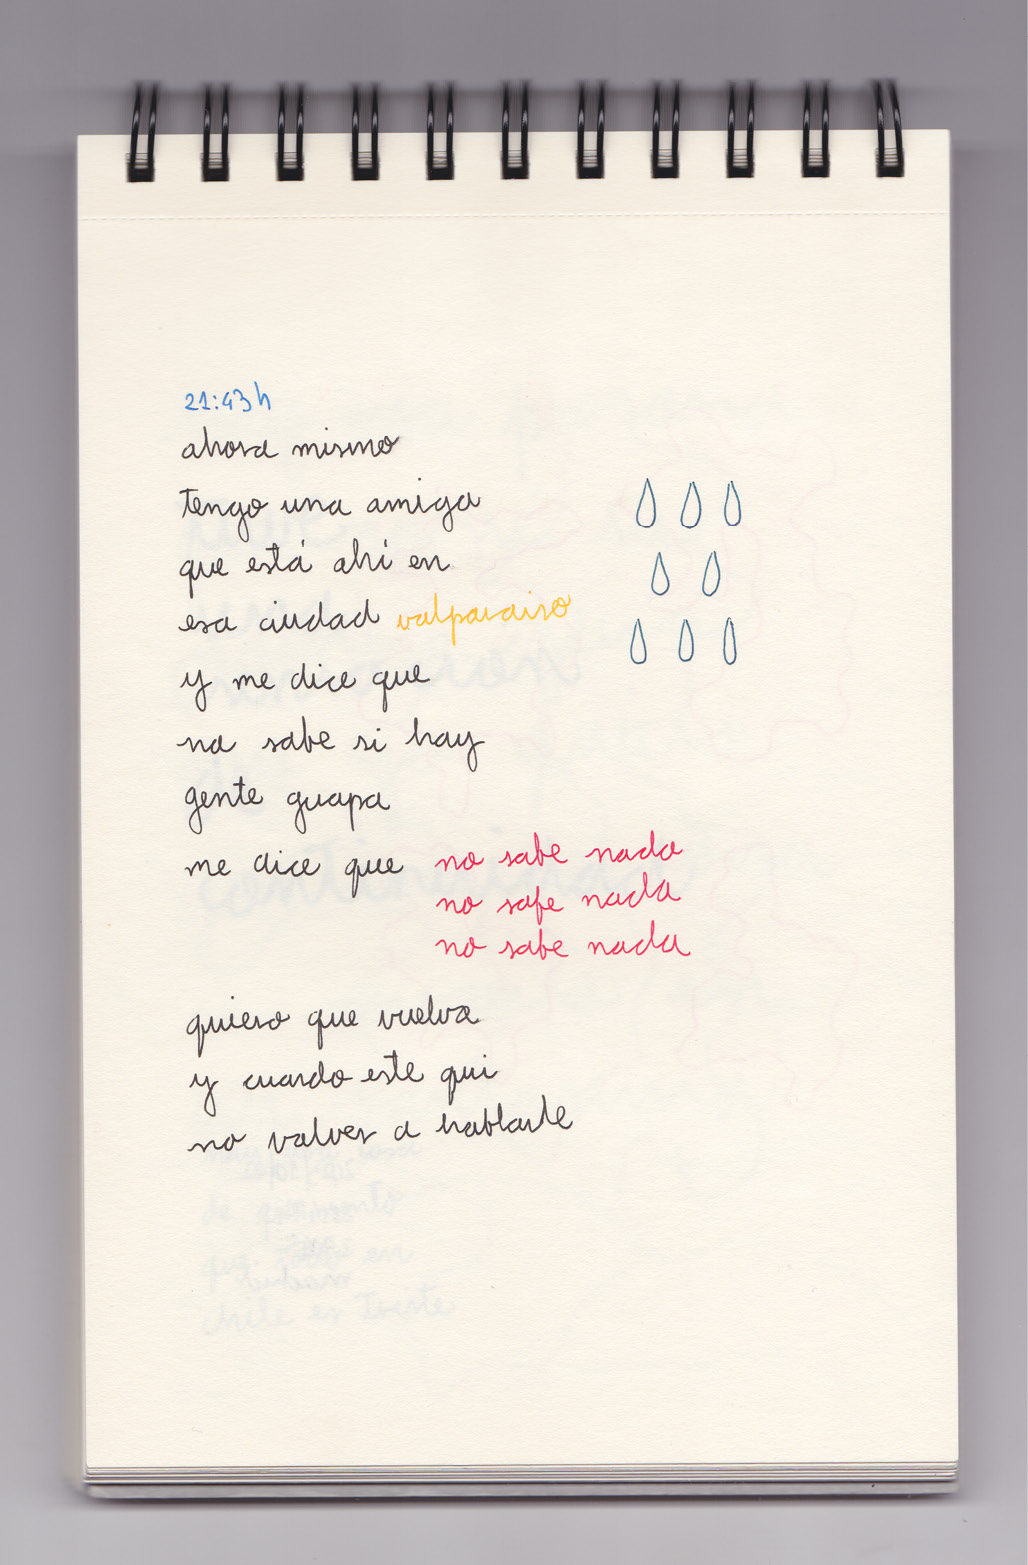 21:43h
ahora mismo
tengo una amiga
que está ahí en
esa ciudad valparaiso
y me dice que
no sabe si hay
gente guapa
me dice que no sabe nada
no sabe nada
no sabe nada
quiero que vuelva
y cuando este qui
no valver a hablarle
de
chile es triste